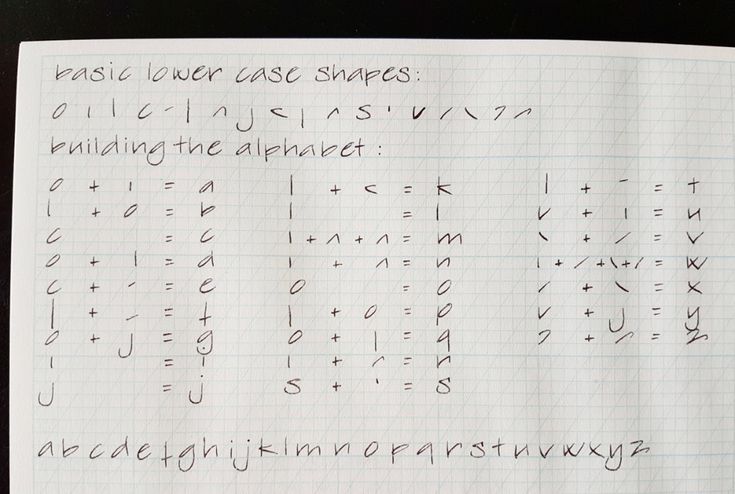 basic lower case shapes:
o ı l c - | ∩ j < | ∩ s ' v / \ ? ⌒
building the alphabet:
o + ı = a
l + o = b
c = c
o + l = d
c + - = e
| + - = f
o + j = g
ı = i
j = j
l + < = k
l = l
ı + ∩ + ∩ = m
ı + ∩ = n
o = o
| + o = p
o + | = q
ı + ⌒ = r
s + ' = s
l + - = t
v + ı = u
\ + / = v
ı + / + \ + / = w
/ + \ = x
v + j = y
? + ⌒ = z
abcdefghijklmnopqrstuvwxyz